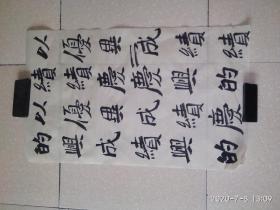 以優異成績績
績績慶慶與的
以優異成績慶
的與成績與的
2020-7-8 13:09